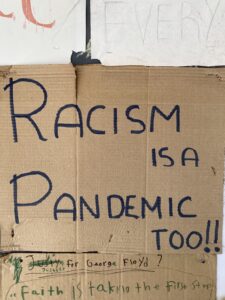 EVERY
RACISM
IS A
PANDEMIC
TOO!!
for George Floyd ?
"Faith is taking the first step